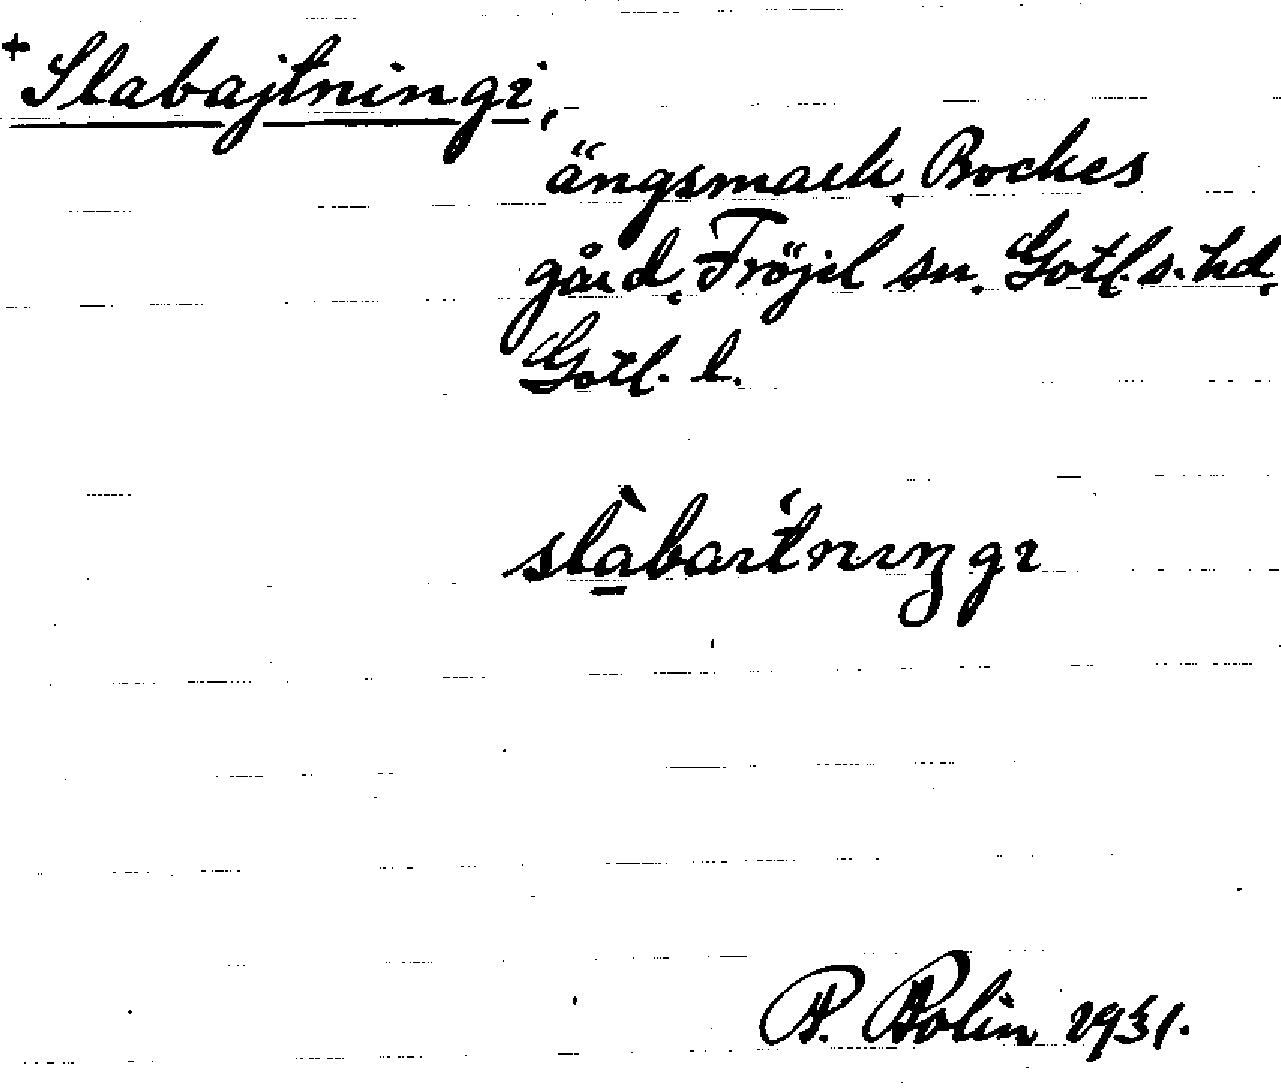 + Slabajtningi,
ängsmark, Bockes
gård, Fröjel sn. Gotl. s. hd,
Gotl. l.
slàbaıtnıŋgı
P. Bolin 1931.